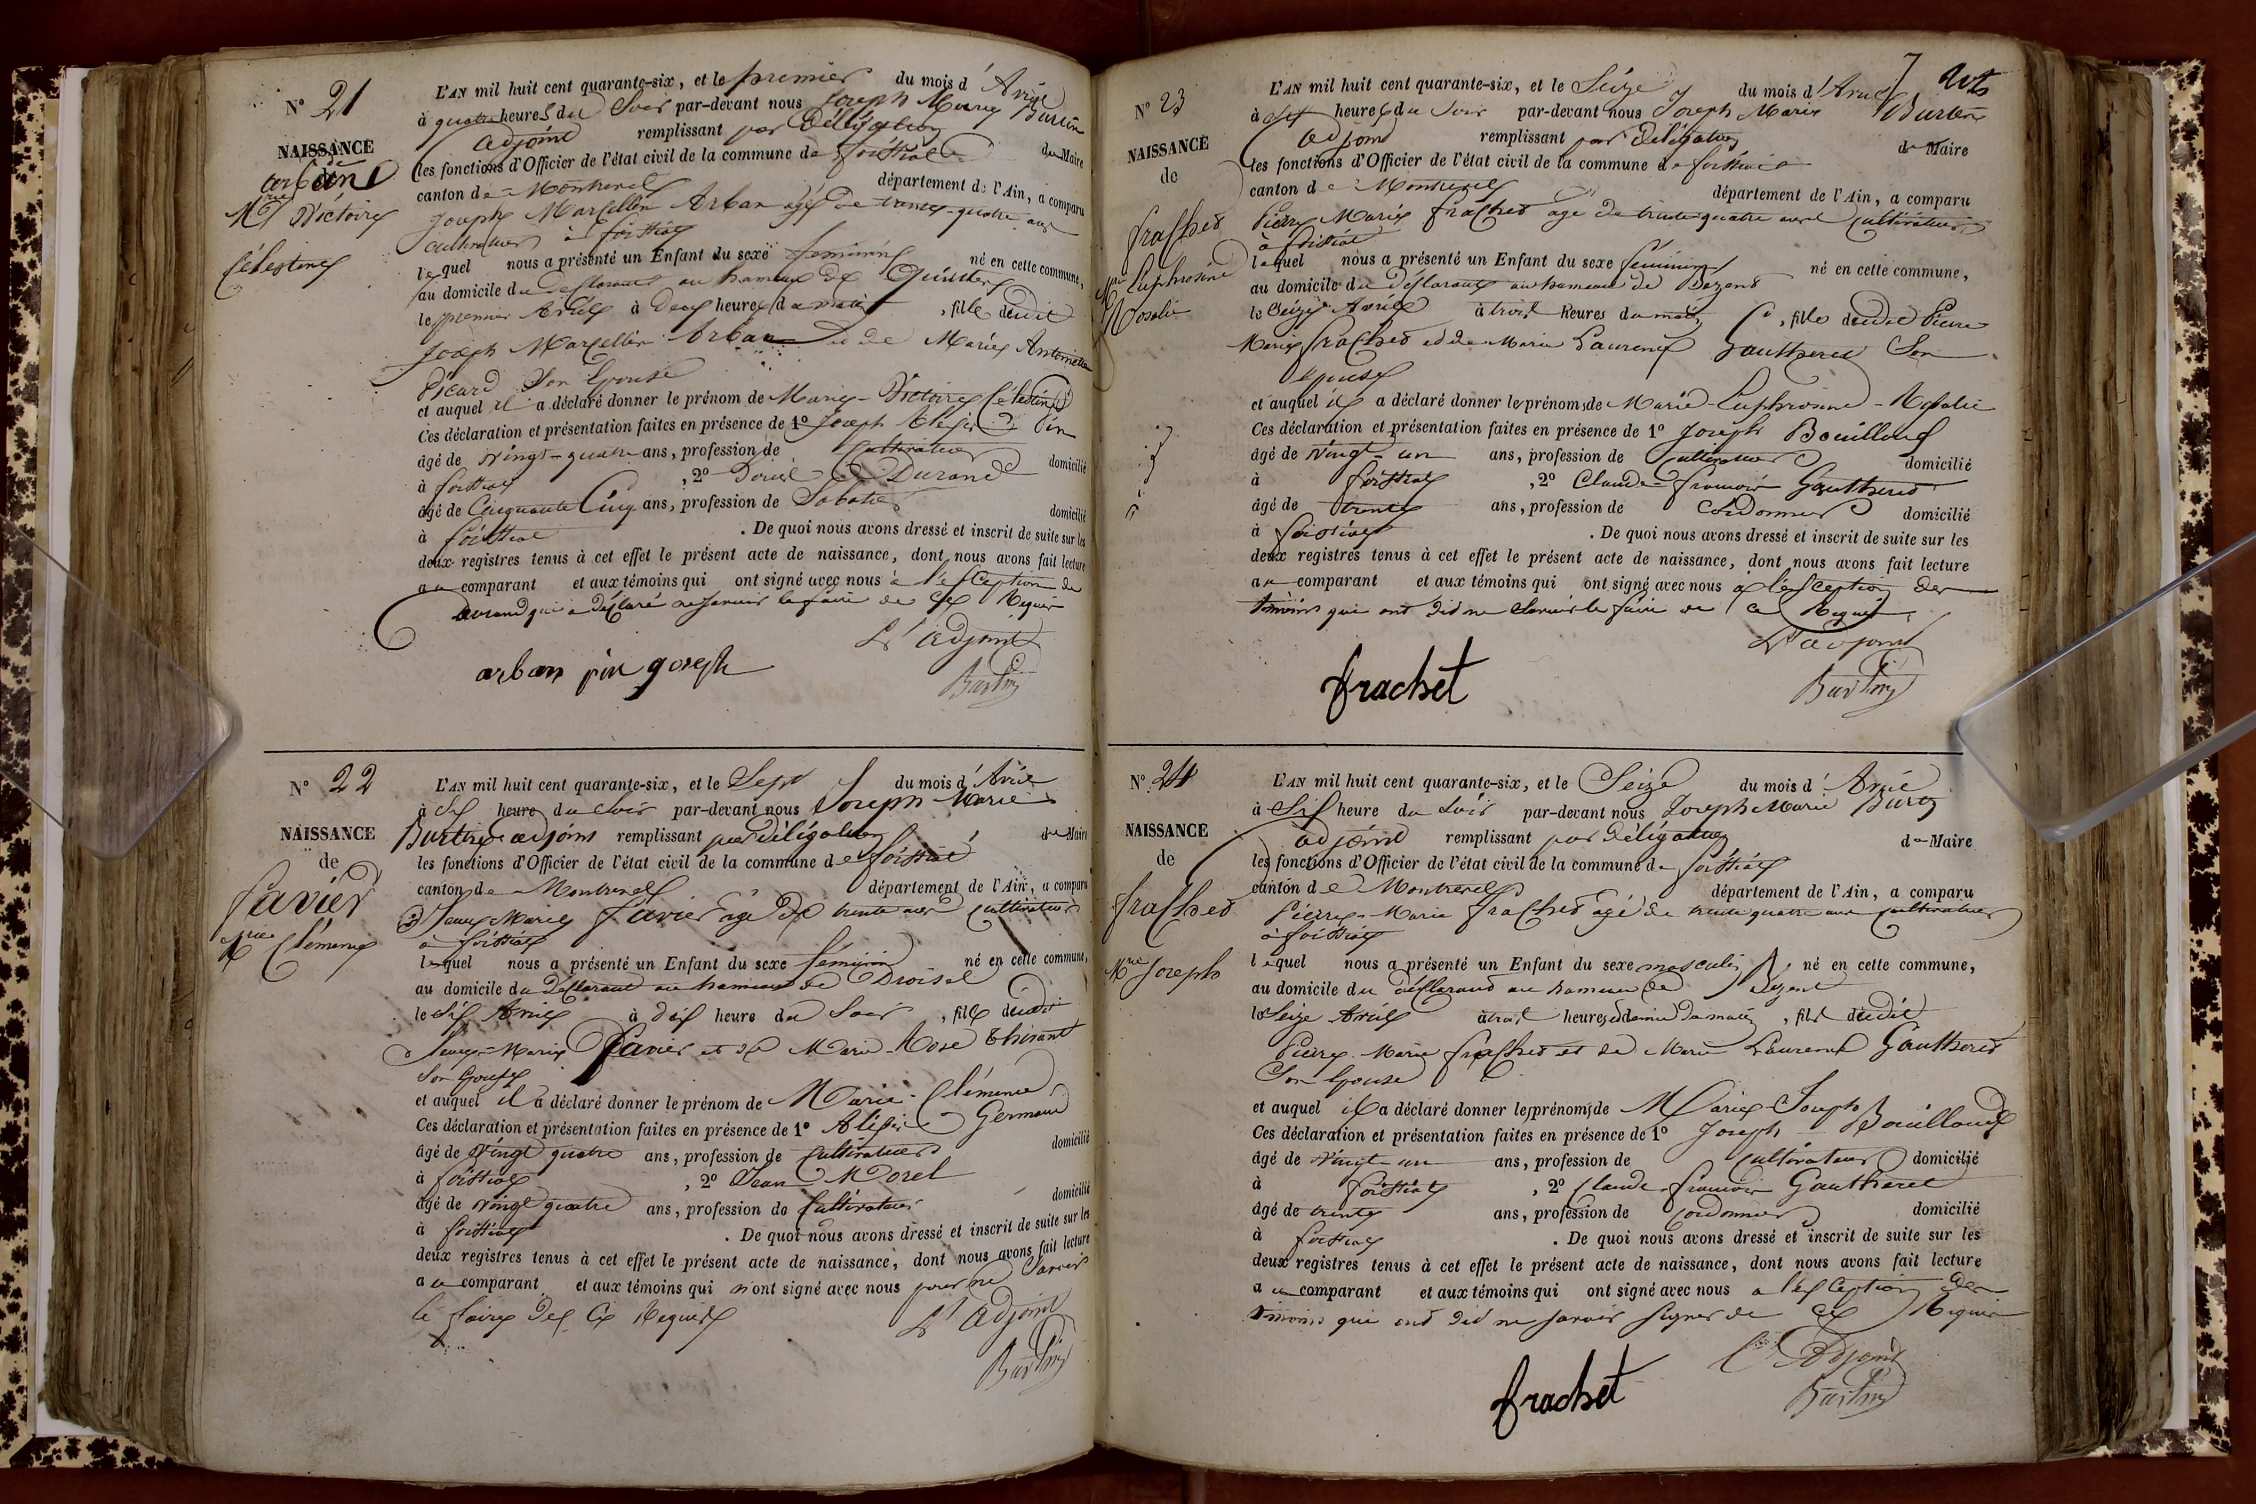 N° 21
NAISSANCE
de
arban
Mie Victoire
Célestine
L'AN mil huit cent quarante-six, et le premier du mois d'Avril
à quatre heures du Soir par-devant nous Joseph Marie Burtin
adjoint remplissant par Délégation du Maire
les fonctions d'Officier de l'état civil de la commune de foissiat
canton de Montrevel département de l'Ain, a comparu
Joseph Marcellin Arban âgé de trente-quatre ans
cultivateur à foissiat
lequel nous a présenté un Enfant du sexe féminin né en cette commune,
au domicile du déclarant au hameau de
le premier Avril à Deux heures du matin, fille dudit
Joseph Marcellin Arban et de Marie Antoinette
Picard Son Epouse
et auquel il a déclaré donner le prénom de Marie-Victoire Célestine
Ces déclaration et présentation faites en présence de 1° Joseph Alexis Pin
âgé de vingt-quatre ans, profession de Cultivateur domicilié
à foissiat, 2° Durand
âgé de Cinquante Cinq ans, profession de Sabotier domicilié
à foissiat. De quoi nous avons dressé et inscrit de suite sur les
deux registres tenus à cet effet le présent acte de naissance, dont nous avons fait lecture
au comparant et aux témoins qui ont signé avec nous à l'exception de
durand qui a déclaré ne savoir le faire de ce Requis
L'adjoint
arban pin joseph Burtin
N° 22
NAISSANCE
de
favier
Mie Clémence
L'AN mil huit cent quarante-six, et le Sept du mois d'Avril
à Six heure du soir par-devant nous Joseph Marie
Burtin adjoint remplissant par Délégation du Maire
les fonctions d'Officier de l'état civil de la commune de foissiat
canton de Montrevel département de l'Ain, a comparu
Jean-Marie favier âgé de trente ans cultivateur
à foissiat
lequel nous a présenté un Enfant du sexe féminin né en cette commune,
au domicile du Déclarant au hameau de Droisel
le Six Avril à dix heure du Soir, fille dudit
Jean-Marie favier et de Marie-Rose Thirant
Son Epouse
et auquel il a déclaré donner le prénom de Marie-Clémence
Ces déclaration et présentation faites en présence de 1° Alexis Germain
âgé de vingt quatre ans, profession de cultivateur domicilié
à foissiat, 2° Jean Morel
âgé de vingt quatre ans, profession de Cultivateur domicilié
à foissiat. De quoi nous avons dressé et inscrit de suite sur les
deux registres tenus à cet effet le présent acte de naissance, dont nous avons fait lecture
au comparant et aux témoins qui n'ont signé avec nous pour ne savoir
le faire de ce Requis
L'adjoint
Burtin
7
N° 23
NAISSANCE
de
frachet
Mie Euphrosine
Rosalie
L'AN mil huit cent quarante-six, et le Seize du mois d'Avril
à Six heures du Soir par-devant nous Joseph Marie Burtin
adjoint remplissant par Délégation du Maire
les fonctions d'Officier de l'état civil de la commune de foissiat
canton de Montrevel département de l'Ain, a comparu
Pierre Marie frachet âgé de trente-quatre ans cultivateur
à foissiat
lequel nous a présenté un Enfant du sexe féminin né en cette commune,
au domicile du déclarant au hameau de Bezend
le Seize Avril à trois heures du matin, fille dudit Pierre
Marie frachet et de Marie Laurence Gautheret Son
epouse
et auquel il a déclaré donner les prénoms de Marie-Euphrosine-Rosalie
Ces déclaration et présentation faites en présence de 1° Joseph Bouilloux
âgé de vingt-un ans, profession de Cultivateur domicilié
à foissiat, 2° Claude-françois Gautheret
âgé de trente ans, profession de Cordonnier domicilié
à foissiat. De quoi nous avons dressé et inscrit de suite sur les
deux registres tenus à cet effet le présent acte de naissance, dont nous avons fait lecture
au comparant et aux témoins qui ont signé avec nous à l'exception des
témoins qui ont dit ne savoir le faire de ce Requis
L'adjoint
frachet Burtin
N° 24
NAISSANCE
de
frachet
Mie Joseph
L'AN mil huit cent quarante-six, et le Seize du mois d'Avril
à Six heure du Soir par-devant nous Joseph Marie Burtin
adjoint remplissant par délégation du Maire
les fonctions d'Officier de l'état civil de la commune de foissiat
canton de Montrevel département de l'Ain, a comparu
Pierre-Marie frachet âgé de trente quatre ans cultivateur
à foissiat
lequel nous a présenté un Enfant du sexe masculin né en cette commune,
au domicile du déclarant au hameau de Bezend
le Seize Avril à trois heures et demie du matin, fils dudit
Pierre Marie frachet et de Marie Laurence Gautheret
Son Epouse
et auquel il a déclaré donner les prénoms de Marie-Joseph
Ces déclaration et présentation faites en présence de 1° Joseph Bouilloux
âgé de vingt-un ans, profession de cultivateur domicilié
à foissiat, 2° Claude-françois Gautheret
âgé de trente ans, profession de Cordonnier domicilié
à foissiat. De quoi nous avons dressé et inscrit de suite sur les
deux registres tenus à cet effet le présent acte de naissance, dont nous avons fait lecture
au comparant et aux témoins qui ont signé avec nous à l'exception des
témoins qui ont dit ne savoir signer de ce Requis
L'adjoint
frachet Burtin